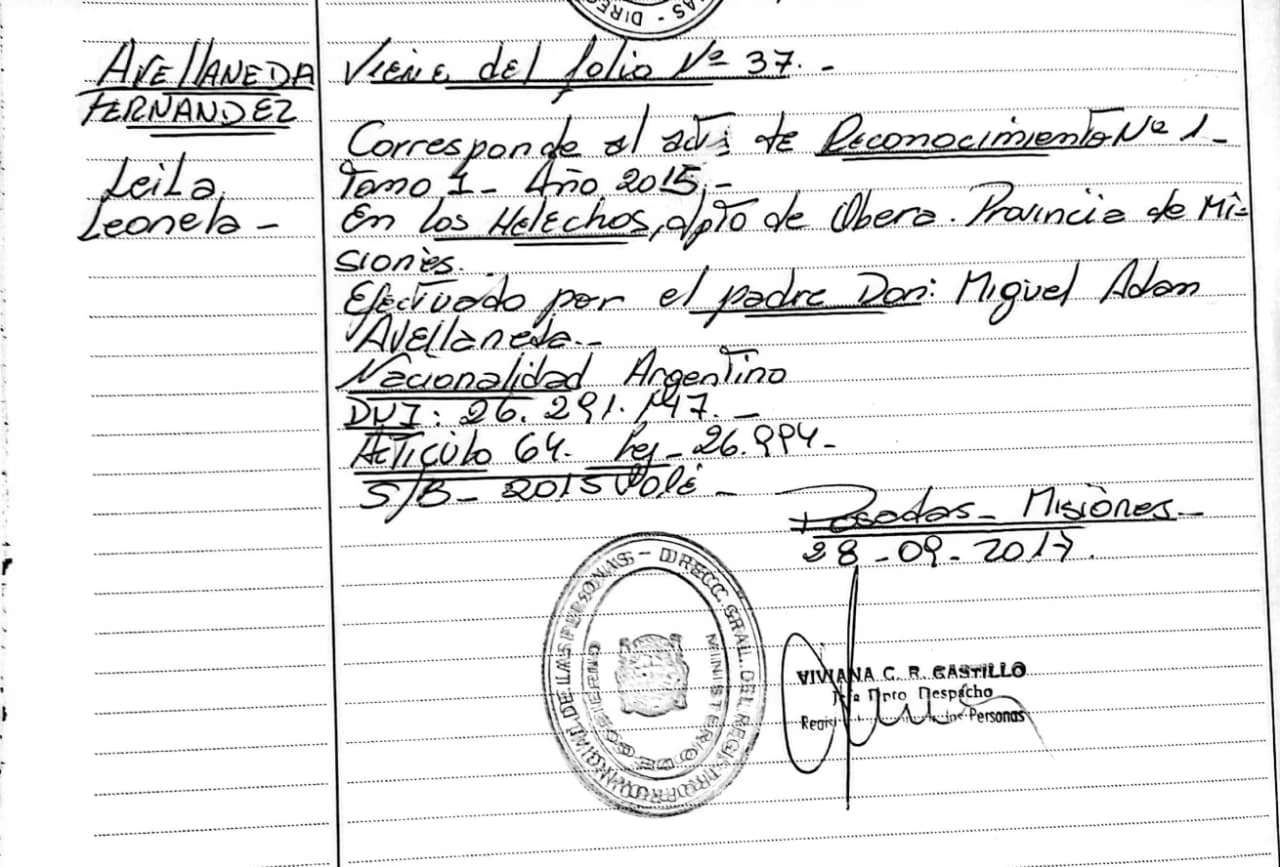 AS - DIREC
AVELLANEDA
FERNANDEZ
Leila
Leonela -
Viene del folio Nº 37. -
Corresponde al acta de Reconocimiento Nº 1 -
Tomo 1 - Año 2015. -
En los Helechos, dpto de Obera. Provincia de Mi-
siones.
Efectuado por el padre Don: Miguel Adan
Avellaneda. -
Nacionalidad Argentino
DNI: 26.291.147. -
Articulo 64. Ley - 26.994 -
S/B - 2015
Posadas - Misiones -
28 - 09 - 2017.
DIRECC. GRAL. DEL REGISTRO PROVINCIAL DE LAS PERSONAS -
MINISTERIO DE GOBIERNO
VIVIANA C. R. CASTILLO
Dpto Despacho
Personas